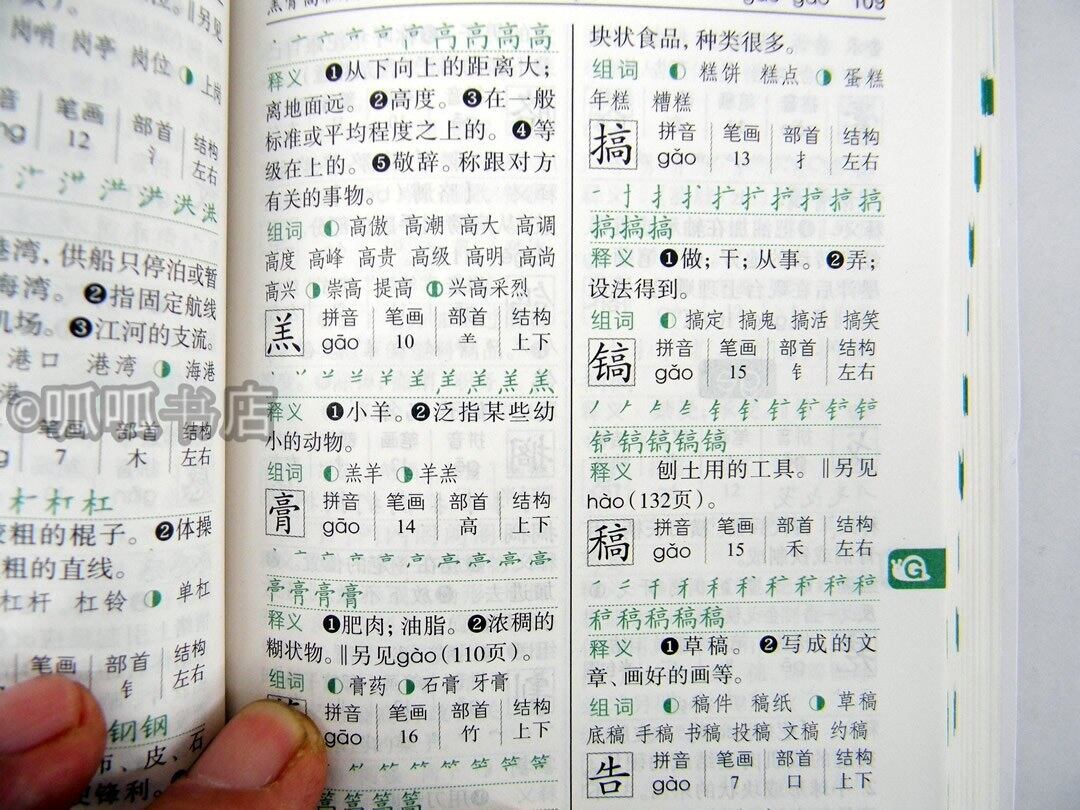 另见
岗哨 岗亭 岗位 上岗
笔画 部首 结构
12 氵 左右
洪 洪 洪
港湾，供船只停泊或暂
海湾。❷指固定航线
机场。❸江河的支流。
港口 港湾 海港
©呱呱书店
笔画 部首 结构
7 木 左右
杠 杠
粗的棍子。❷体操
粗的直线。
杠杆 杠铃 单杠
笔画 部首 结构
钅 左右
钢 钢
109
高 高 高 高
释义 ❶从下向上的距离大；
离地面远。❷高度。❸在一般
标准或平均程度之上的。❹等
级在上的。❺敬辞。称跟对方
有关的事物。
组词 高傲 高潮 高大 高调
高度 高峰 高贵 高级 高明 高尚
高兴 崇高 提高 兴高采烈
羔 拼音 笔画 部首 结构
gāo 10 羊 上下
释义 ❶小羊。❷泛指某些幼
小的动物。
组词 羔羊 羊羔
膏 拼音 笔画 部首 结构
gāo 14 高 上下
释义 ❶肥肉；油脂。❷浓稠的
糊状物。‖另见gào（110页）。
组词 膏药 石膏 牙膏
拼音 笔画 部首 结构
gāo 16 竹 上下
篙 篙 篙
块状食品，种类很多。
组词 糕饼 糕点 蛋糕
年糕 糟糕
搞 拼音 笔画 部首 结构
gǎo 13 扌 左右
搞搞搞
释义 ❶做；干；从事。❷弄；
设法得到。
组词 搞定 搞鬼 搞活 搞笑
镐 拼音 笔画 部首 结构
gǎo 15 钅 左右
镐镐镐镐
释义 刨土用的工具。‖另见
hào（132页）。
稿 拼音 笔画 部首 结构
gǎo 15 禾 左右
稿稿稿稿
释义 ❶草稿。❷写成的文
章、画好的画等。
组词 稿件 稿纸 草稿
底稿 手稿 书稿 投稿 文稿 约稿
告 拼音 笔画 部首 结构
gào 7 口 上下
G